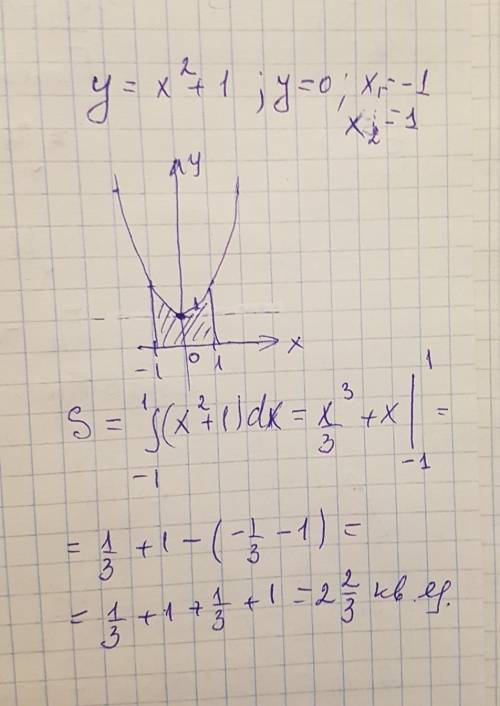 y = x² + 1 ; y = 0 ; x₁ = -1
x₂ = 1
y
1
-1 0 1 x
S = ∫₋₁¹ (x² + 1) dx = x³/3 + x |₋₁¹ =
= 1/3 + 1 - (-1/3 - 1) =
= 1/3 + 1 + 1/3 + 1 = 2 2/3 кв. ед.